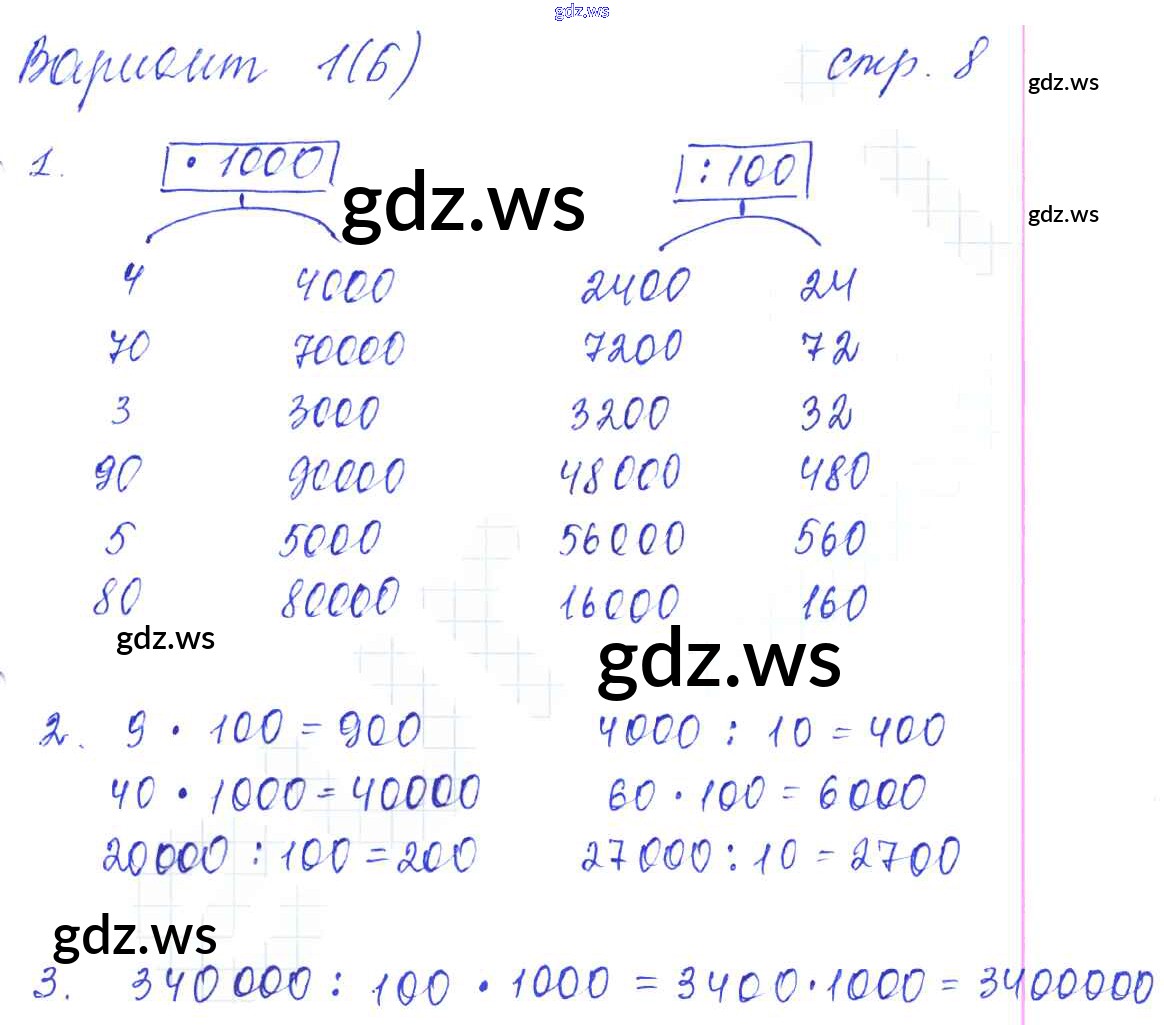 gdz.ws
Вариант 1(б) стр. 8
gdz.ws
1. · 1000 : 100
gdz.ws
gdz.ws
4 4000 2400 24
70 70000 7200 72
3 3000 3200 32
90 90000 48000 480
5 5000 56000 560
80 80000 16000 160
gdz.ws
gdz.ws
2. 9 · 100 = 900 4000 : 10 = 400
40 · 1000 = 40000 60 · 100 = 6000
20000 : 100 = 200 27000 : 10 = 2700
gdz.ws
3. 340 000 : 100 · 1000 = 3400 · 1000 = 3400000